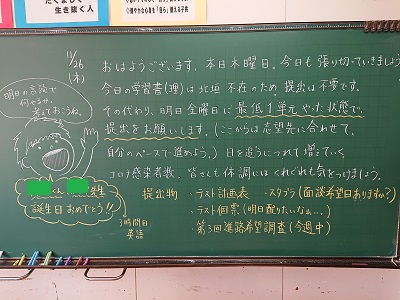 たくましく
生き抜く人
11/26
(木)
おはようございます。本日木曜日。今日も張り切っていきましょう
今日の学習書(理)は北垣不在のため、提出は不要です。
その代わり、明日金曜日に最低1単元やった状態で、
提出をお願いします。(ここからは志望先に合わせて、
自分のペースで進めよう。)日を追うにつれて増えていく、
コロナ感染者数。皆さんも体調にはくれぐれも気をつけましょう。
明日の言語で
何やるか、
考えておこうね。
くん
先生
誕生日おめでとう!!
3時間目
英語
提出物
・テスト計画表
・スタプラ(面談希望日ありますか?)
・テスト個票(明日配りたいなぁ…)
・第3回進路希望調査(今週中)